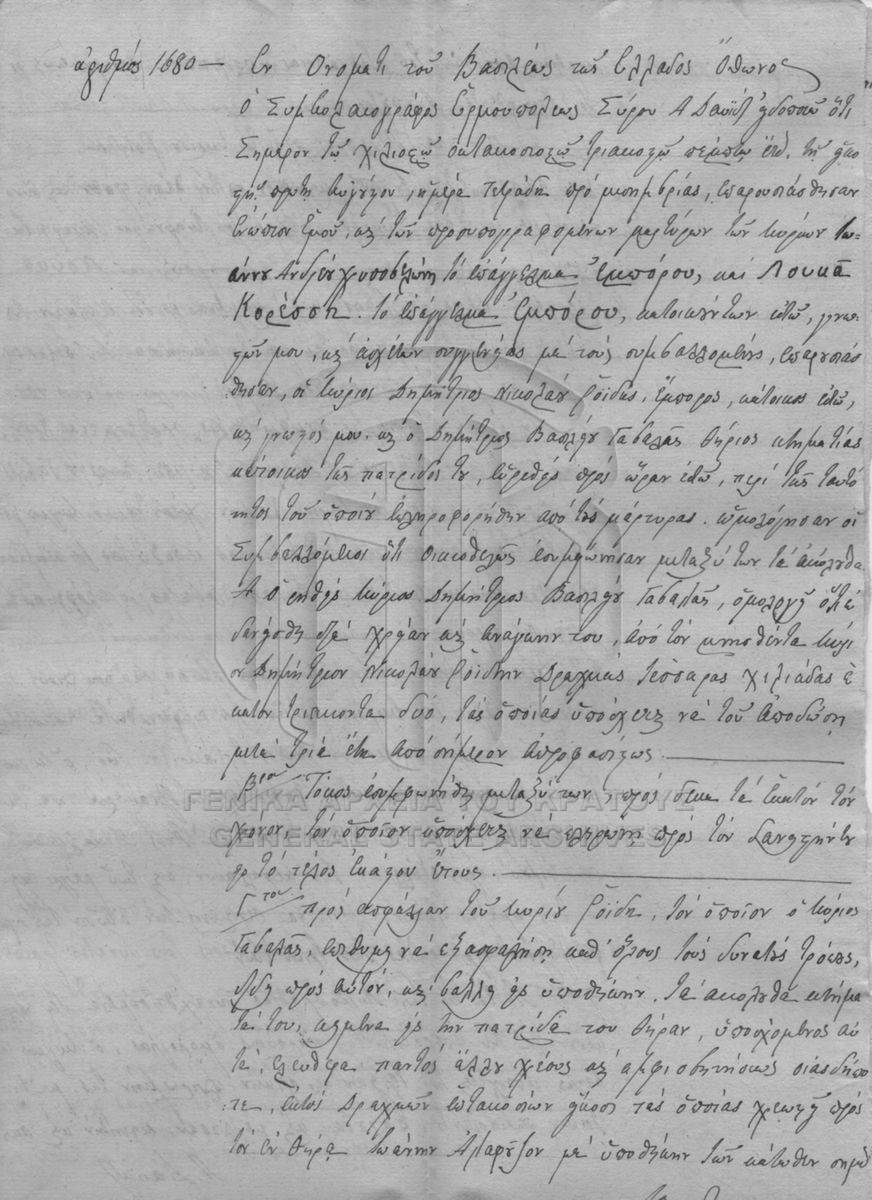 ἀριθμός 1680 — Εν Ονοματι τοῦ Βασιλέως τῆς Ελλαδος Ὄθωνος
Ο Συμβολαιογράφος Ερμουπόλεως Σύρου Α Δαυὶδ εἰδοποιῶ ὅτι
Σήμερον τῷ χιλιοςῷ οκτακοσιοςῷ τριακοςῷ πέμπτῳ ἔτει τῇ εἰκος
τῇ πρώτῃ αυγούςου, ημέρᾳ τετράδη πρό μεσημβρίας, επαρουσιάσθησαν
Ενώπιον Εμοῦ, καὶ τῶν προσυπογραφομένων μαρτύρων τῶν κυρίων Ιω-
άννου Ανδρέου χρυσοβελώνη τὸ επάγγελμα Ἐμπόρου, καὶ Λουκᾶ
Κορέσση. τὸ επάγγελμα Ἐμπόρου, κατοικούντων εδῶ, γνως
τῶν μου, καὶ ἀσχέτων συγγενείας μὲ τοὺς συμβαλλομένους, επαρουσιάσ
θησαν, οἱ κύριος Δημήτριος Νικολάου Ροΐδης, Ἔμπορος, κάτοικος εδῶ,
καὶ γνωςός μου. καὶ ὁ Δημήτριος Βασιλείου Γαβαλᾶς Θήριος κτηματίας
κάτοικος τῆς πατρίδος του, εὑρεθεὶς πρὸς ὥραν εδῶ, περὶ τῆς ταυτό
τητος τοῦ ὁποίου επληροφορήθην από τοὺς μάρτυρας. ὡμολόγησαν οἱ
Συμβαλλόμενοι ὅτι οικειοθελῶς εσυμφώνησαν μεταξύ των τὰ ἀκόλουθα
Α Ο ρηθεὶς κύριος Δημήτριος Βασιλείου Γαβαλᾶς, ὁμολογεῖ ὅτι ἐ
δανείσθη διὰ χρείαν καὶ ανάγκην του, από τον μνησθέντα κύρι
ον Δημήτριον Νικολάου Ροΐδην Δραχμὰς τέσσαρας χιλιάδας ἑ
κατον τριακοντα δύο, τὰς ὁποίας ὑπόσχεται νὰ τοῦ ἀποδώσῃ
μετὰ τρία ἔτη από σήμερον απροφασίςως.
Βον Τόκος εσυμφωνήθη μεταξύ των, πρὸς δεκα τὰ ἑκατόν τόν
χρόνον, τόν ὁποῖον ὑπόσχεται νὰ πληρώνῃ πρὸς τὸν δανειςήν του
εἰς τὸ τέλος ἑκάςου ἔτους.
Γτον πρὸς ασφάλειαν τοῦ κυρίου Ροΐδη, τόν ὁποῖον ὁ κύριος
Γαβαλᾶς, επιθυμεῖ νὰ εξασφαλήσῃ καθ' ὅλους τοὺς δυνατοὺς τρόπους,
δίδει πρὸς αυτόν, καὶ βάλλει εἰς ὑποθήκην. τὰ ακολουθα κτήμα
τά του, κείμενα εἰς την πατρίδα του Θήραν, ὑποσχόμενος αυ
τὰ, ελευθερα παντὸς ἄλλου χρέους καὶ ἀμφισβητήσεως οιασδήπο
τε, ἐκτὸς Δραχμῶν ἑπτακοσίων εἴκοσι τὰς ὁποίας χρεωςεῖ πρὸς
τον εν Θήρᾳ Ιωάννην μὲ ὑποθήκην τῶν κάτωθεν σημει
ΓΕΝΙΚΑ ΑΡΧΕΙΑ ΤΟΥ ΚΡΑΤΟΥΣ
GENERAL STATE ARCHIVES